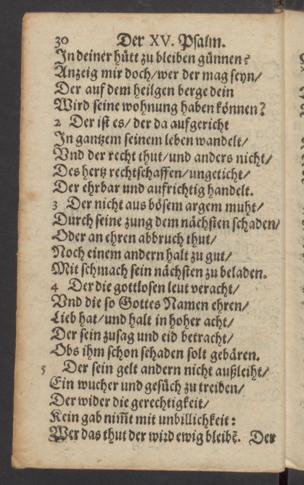 30 Der XV. Psalm.
In deiner hütt zu bleiben günnen?
Anzeig mir doch/ wer der mag seyn/
Der auf dem heilgen berge dein
Wird seine wohnung haben können?
2 Der ist es/ der da aufgericht
In gantzem seinem leben wandelt/
Vnd der recht thut/ und anders nicht/
Des hertz rechtschaffen/ ungeticht/
Der ehrbar und aufrichtig handelt.
3 Der nicht aus bösem argem muht/
Durch seine zung dem nächsten schaden/
Oder an ehren abbruch thut/
Noch einem andern halt zu gut/
Mit schmach sein nächsten zu beladen.
4 Der die gottlosen leut veracht/
Vnd die so Gottes Namen ehren/
Lieb hat/ und halt in hoher acht/
Der sein zusag und eid betracht/
Obs ihm schon schaden solt gebären.
5 Der sein gelt andern nicht außleiht/
Ein wucher und gesüch zu treiben/
Der wider die gerechtigkeit/
Kein gab nim̃t mit unbillichkeit:
Wer das thut der wird ewig bleibẽ. Der